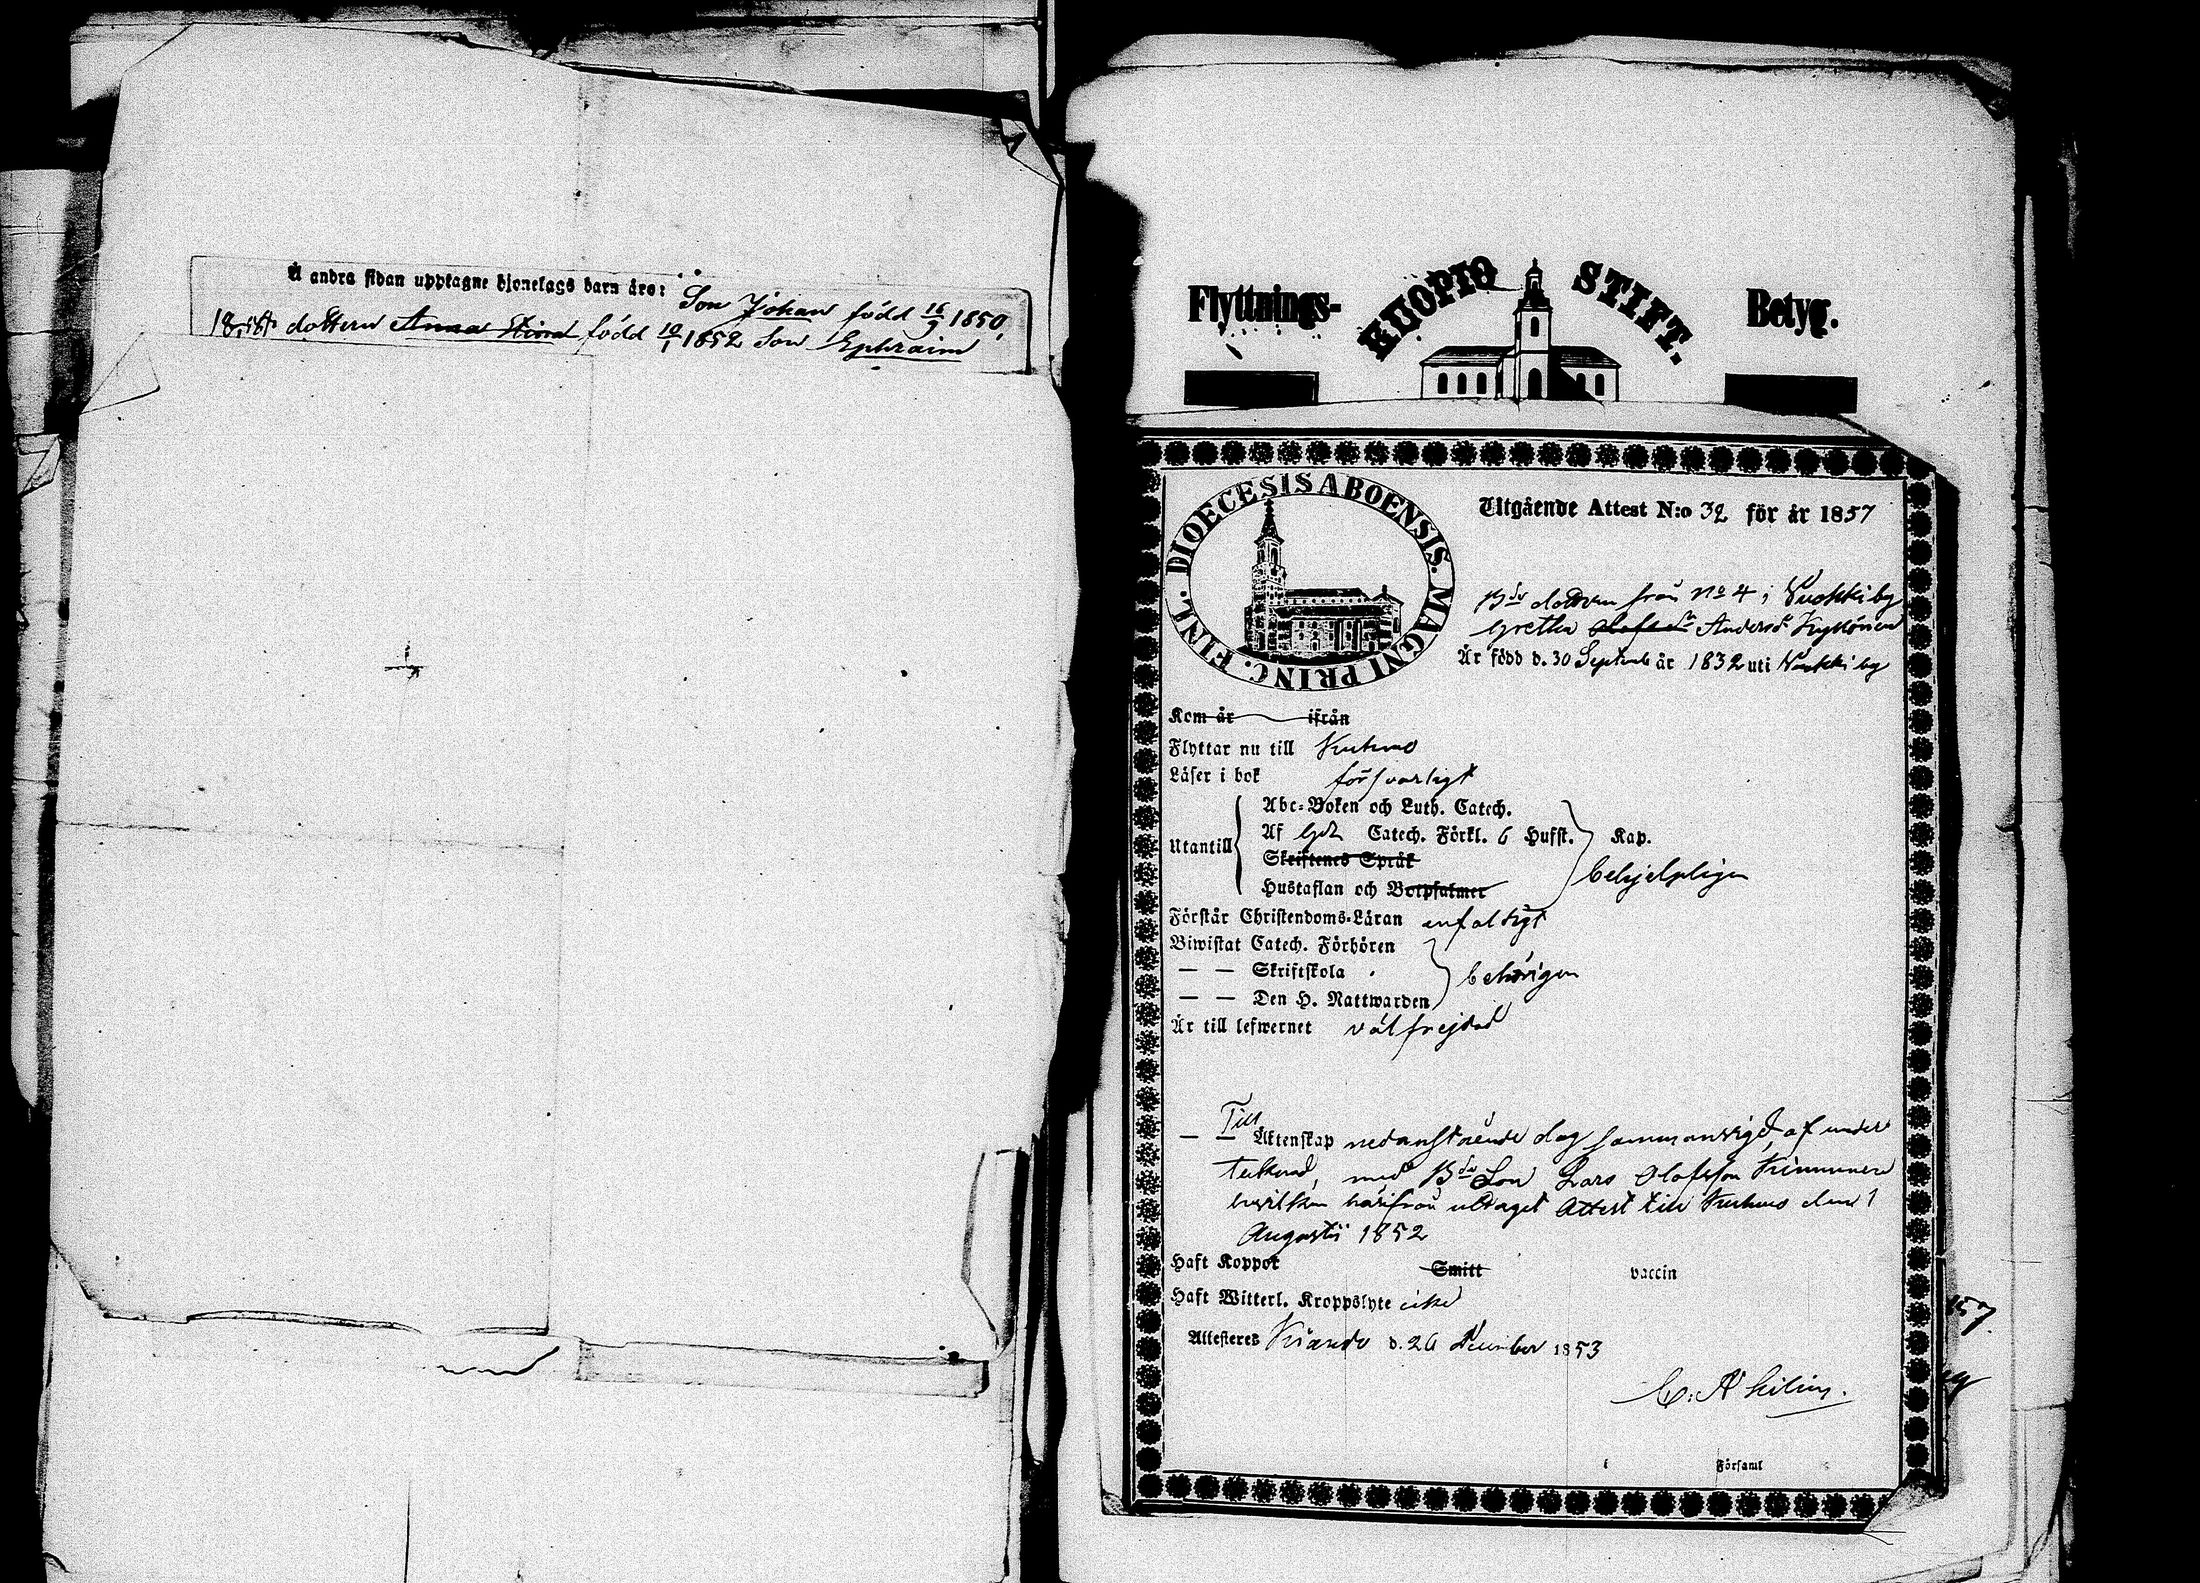 Å andra sidan upptagne hjonelags barn äro:
Son Johan född 16/9 1850,
dottern Anna Stina född 10/1 1852 Son Ephraim
Flyttnings- KUOPIO STIFT. Betyg.
DIOECESIS ABOENSIS. MAGNI PRINC. FINL.
Utgående Attest N:o 32 för år 1857
Bdr dottern från No 4 i Vuokki by
Gretha Andersdr Kyllönen
Är född d. 30 Septemb år 1832 uti Vuokki by
Kom år ifrån
Flyttar nu till Kuhmo
Läser i bok försvarligt
Utantill
Abc-Boken och Luth. Catech.
Af Catech. Förkl. 6 Hufst. Kap.
Skriftenes Språk
Hustaflan och Botpsalmer
behjelpligen
Förstår Christendoms-Läran enfaldigt
Biwistat Catech. Förhören
— — Skriftskola
— — Den H. Nattwarden
behörigen
Är till lefwernet välfrejdad
Till
— — Äktenskap nedanstående dag sammanvigd, af under
tecknad, med Bdr Son Lars Olofsson Kinnunen
hvilken härifrån uttaget Attest till Kuhmo den 1
Augusti 1852
Haft Koppor Smitt vaccin
Haft Witterl. Kroppslyte icke
Attesteres Kiando d. 26 December 1853
Församl